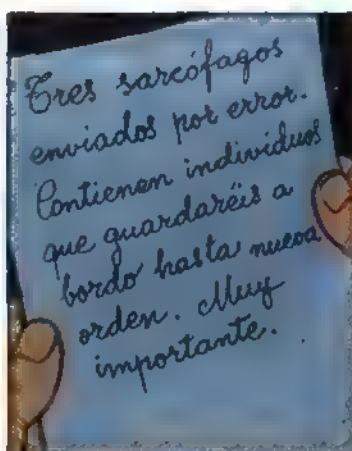 Tres sarcófagos
enviados por error.
Contienen individuos
que guardaréis a
bordo hasta nueva
orden. Muy
importante.